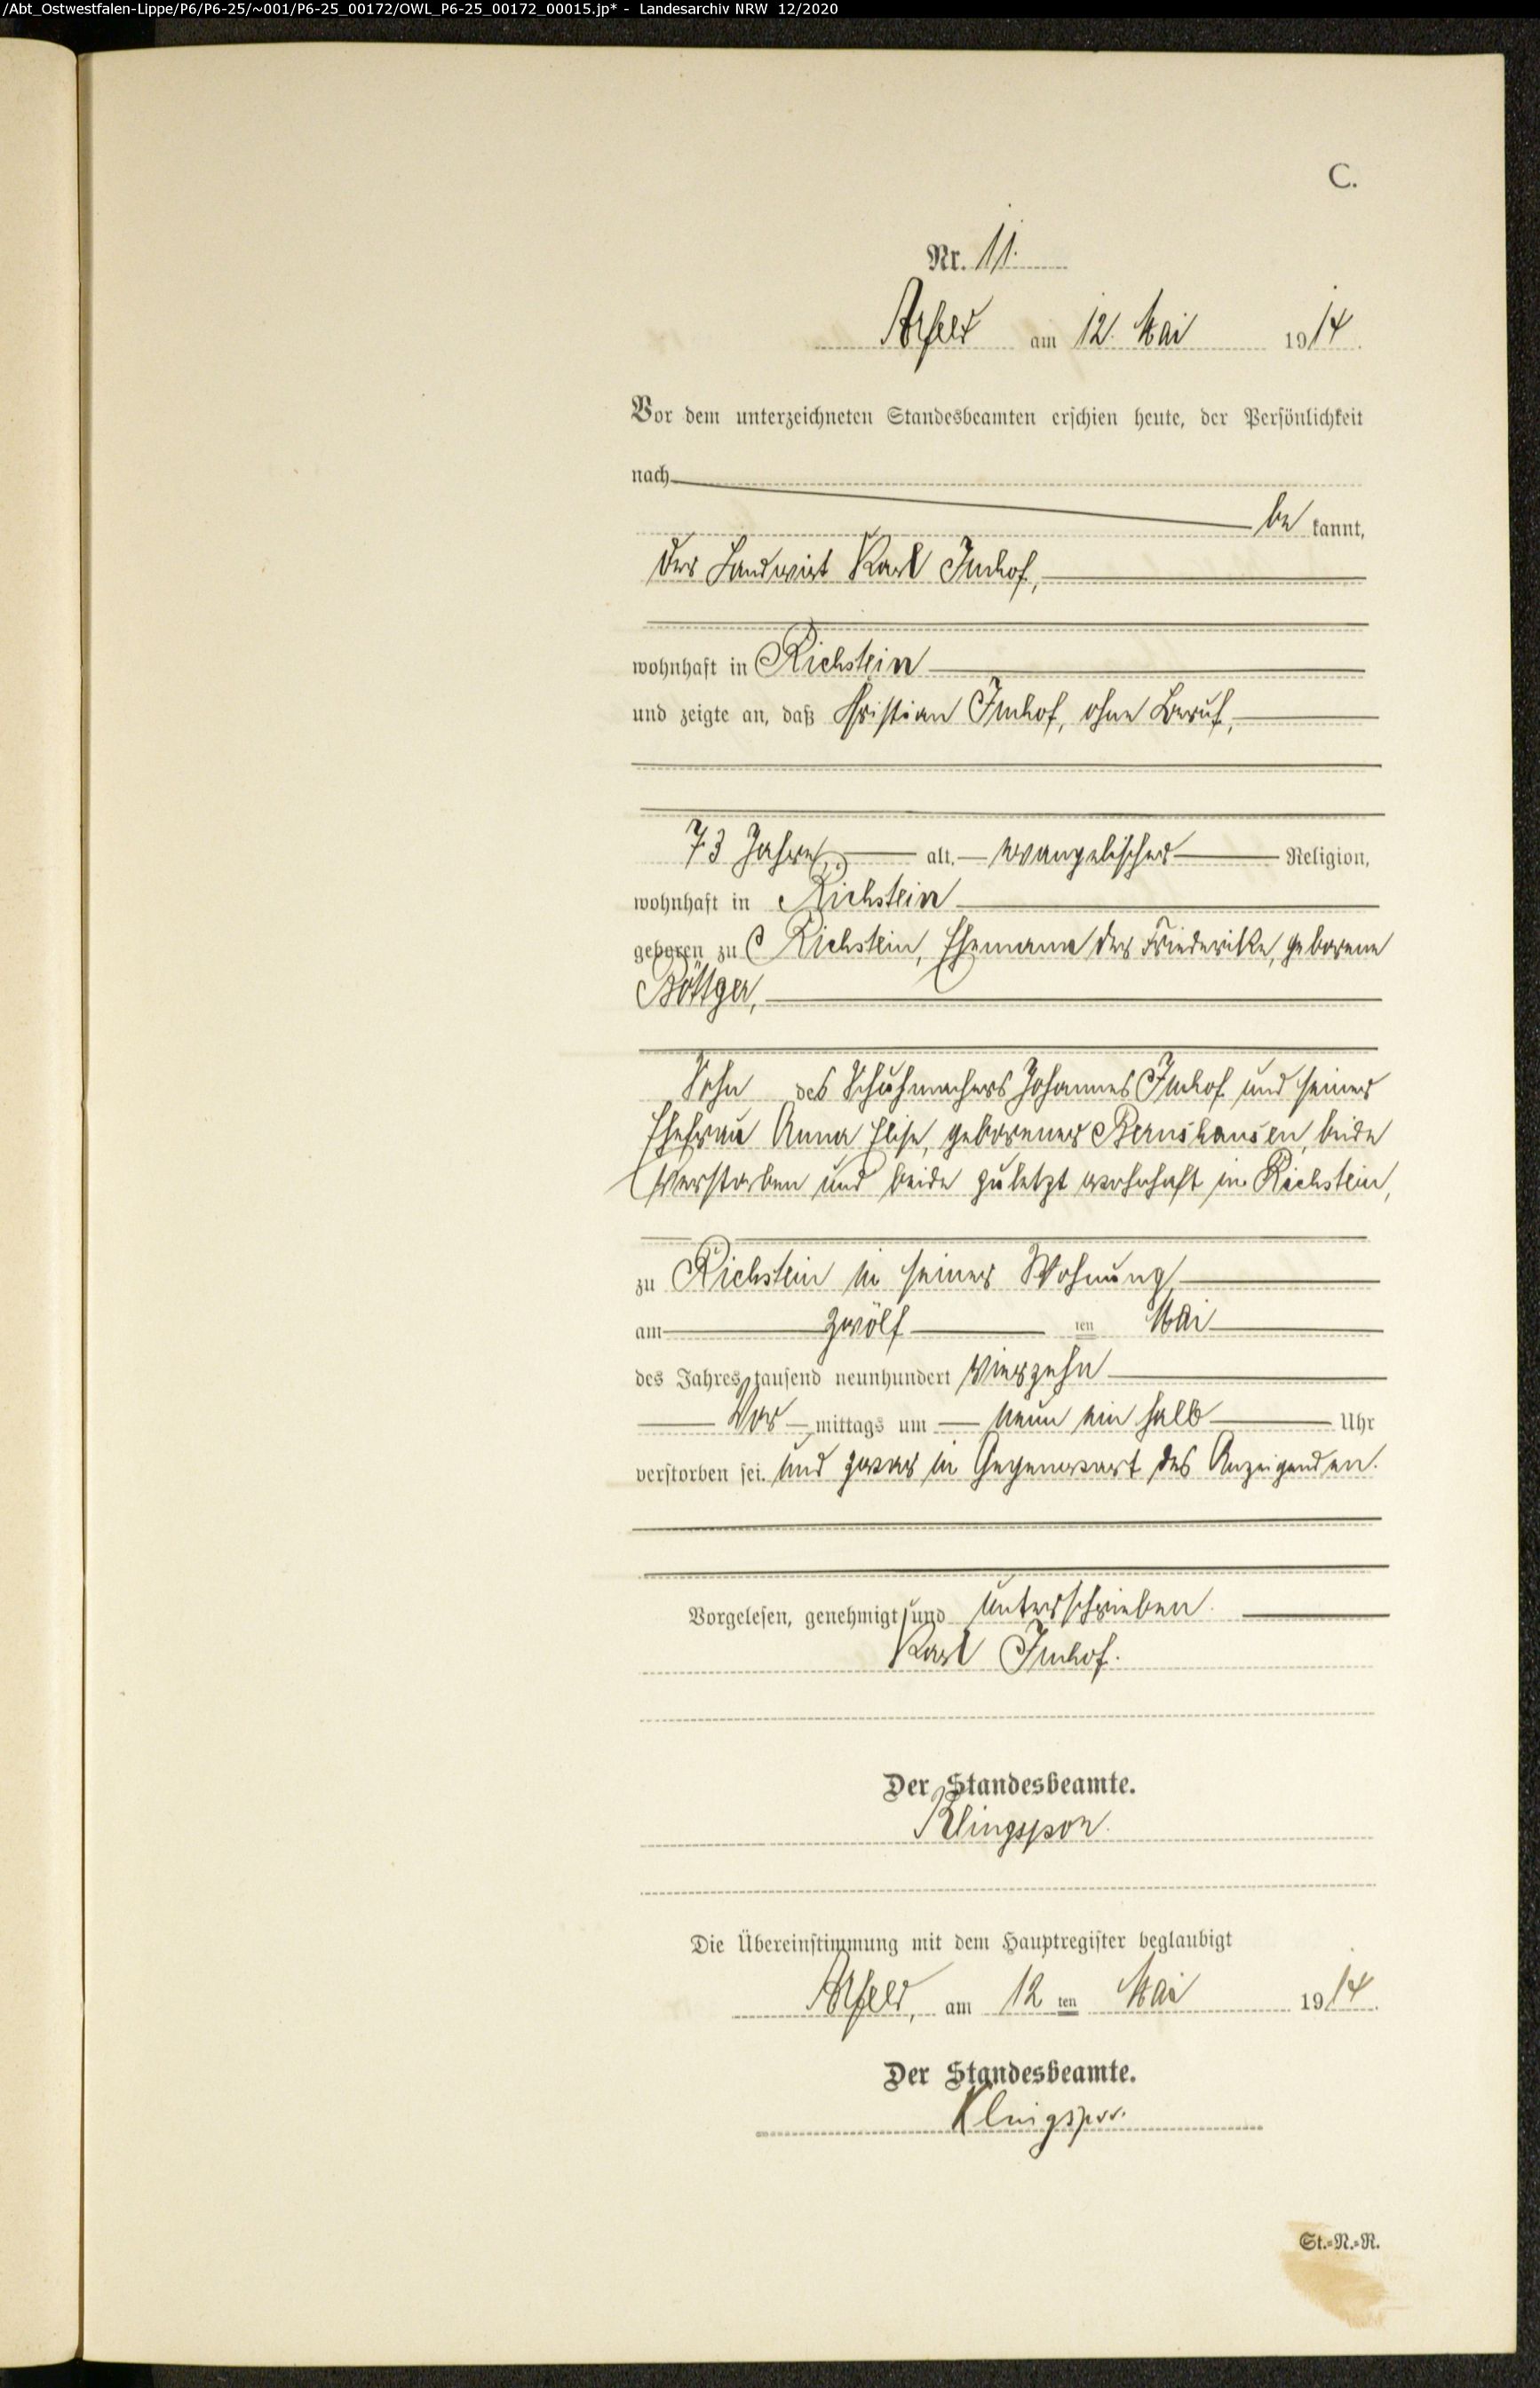 /Abt_Ostwestfalen-Lippe/P6/P6-25/~001/P6-25_00172/OWL_P6-25_00172_00015.jp* - Landesarchiv NRW 12/2020
C.
Nr. 11.
Arfeld am 12. Mai 1914.
Vor dem unterzeichneten Standesbeamten erschien heute, der Persönlichkeit
nach
be kannt,
der Landwirt Karl Imhof,
wohnhaft in Richstein
und zeigte an, daß Christian Imhof, ohne Beruf,
73 Jahre alt, evangelischer Religion,
wohnhaft in Richstein
geboren zu Richstein, Ehemann der Friederike, geborene
Böttger,
Sohn des Schuhmachers Johannes Imhof und seiner
Ehefrau Anna Elise, geborener Bernshausen, beide
verstorben und beide zuletzt wohnhaft in Richstein,
zu Richstein in seiner Wohnung
am zwölf ten Mai
des Jahres tausend neunhundert vierzehn
Vor mittags um neun ein halb Uhr
verstorben sei. und zwar in Gegenwart des Anzeigenden.
Vorgelesen, genehmigt und unterschrieben.
Karl Imhof.
Der Standesbeamte.
Klingspor.
Die Übereinstimmung mit dem Hauptregister beglaubigt
Arfeld, am 12 ten Mai 1914.
Der Standesbeamte.
Klingspor.
St.=N.=R.